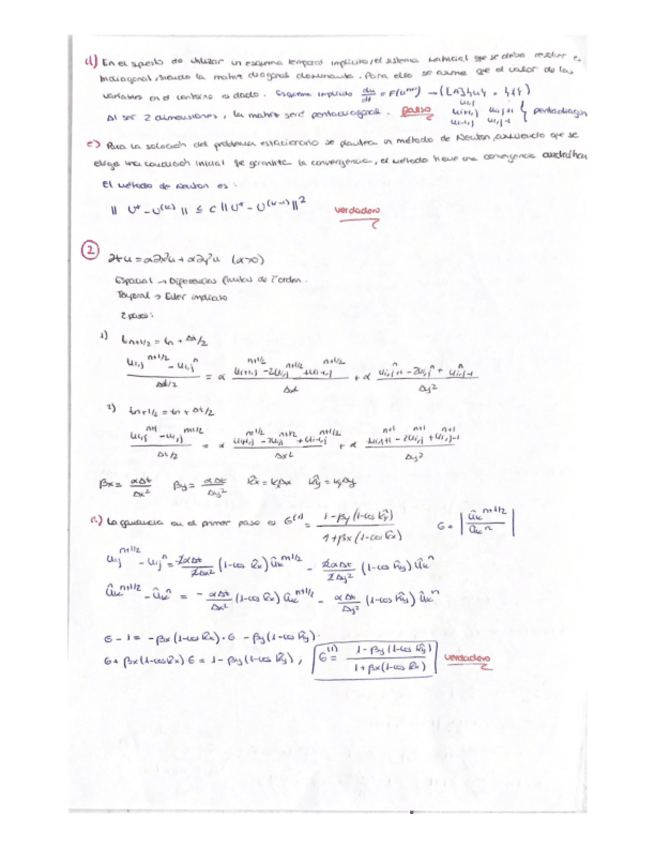 d) En el supuesto de utilizar un esquema temporal implícito, el sistema matricial que se debe resolver es
tridiagonal, siendo la matriz diagonal dominante. Para ello se asume que el valor de las
variables en el contorno es dado. Esquema implícito du/dt = F(uⁿ⁺¹) → ([A]{u} = {f})
Al ser 2 dimensiones, la matriz será pentadiagonal. Falso u_{i,j} u_{i+1,j} u_{i,j+1} u_{i-1,j} u_{i,j-1} } pentadiagon
e) Para la solución del problema estacionario se plantea un método de Newton, asumiendo que se
elige una condición inicial que garantiza la convergencia, el método tiene una convergencia cuadrática
El método de Newton es:
|| U* - U^(k) || ≤ C || U* - U^(k-1) ||² verdadero
② ∂tu = α∂x²u + α∂y²u (α>0)
Espacial → Diferencias finitas de 2º orden.
Temporal → Euler implícito
2 pasos:
1) t_{n+1/2} = t_n + Δt/2
(u_{i,j}^{n+1/2} - u_{i,j}^n)/(Δt/2) = α (u_{i+1,j}^{n+1/2} - 2u_{i,j}^{n+1/2} + u_{i-1,j}^{n+1/2})/Δx² + α (u_{i,j+1}^n - 2u_{i,j}^n + u_{i,j-1}^n)/Δy²
2) t_{n+1/2} = t_n + Δt/2
(u_{i,j}^{n+1} - u_{i,j}^{n+1/2})/(Δt/2) = α (u_{i+1,j}^{n+1/2} - 2u_{i,j}^{n+1/2} + u_{i-1,j}^{n+1/2})/Δx² + α (u_{i,j+1}^{n+1} - 2u_{i,j}^{n+1} + u_{i,j-1}^{n+1})/Δy²
βx = αΔt/Δx² βy = αΔt/Δy² k̂x = kxΔx k̂y = kyΔy
a) La ganancia en el primer paso es G^(1) = (1-βy(1-cos k̂y))/(1+βx(1-cos k̂x)) G = |û_k^{n+1/2}/û_k^n|
u_{ij}^{n+1/2} - u_{ij}^n = -2αΔt/2Δx² (1-cos k̂x) û_k^{n+1/2} - 2αΔt/2Δy² (1-cos k̂y) û_k^n
û_k^{n+1/2} - û_k^n = - αΔt/Δx² (1-cos k̂x) û_k^{n+1/2} - αΔt/Δy² (1-cos k̂y) û_k^n
G - 1 = -βx(1-cos k̂x)·G - βy(1-cos k̂y).
G + βx(1-cos k̂x) G = 1 - βy(1-cos k̂y) , G^(1) = (1-βy(1-cos k̂y))/(1+βx(1-cos k̂x)) verdadero